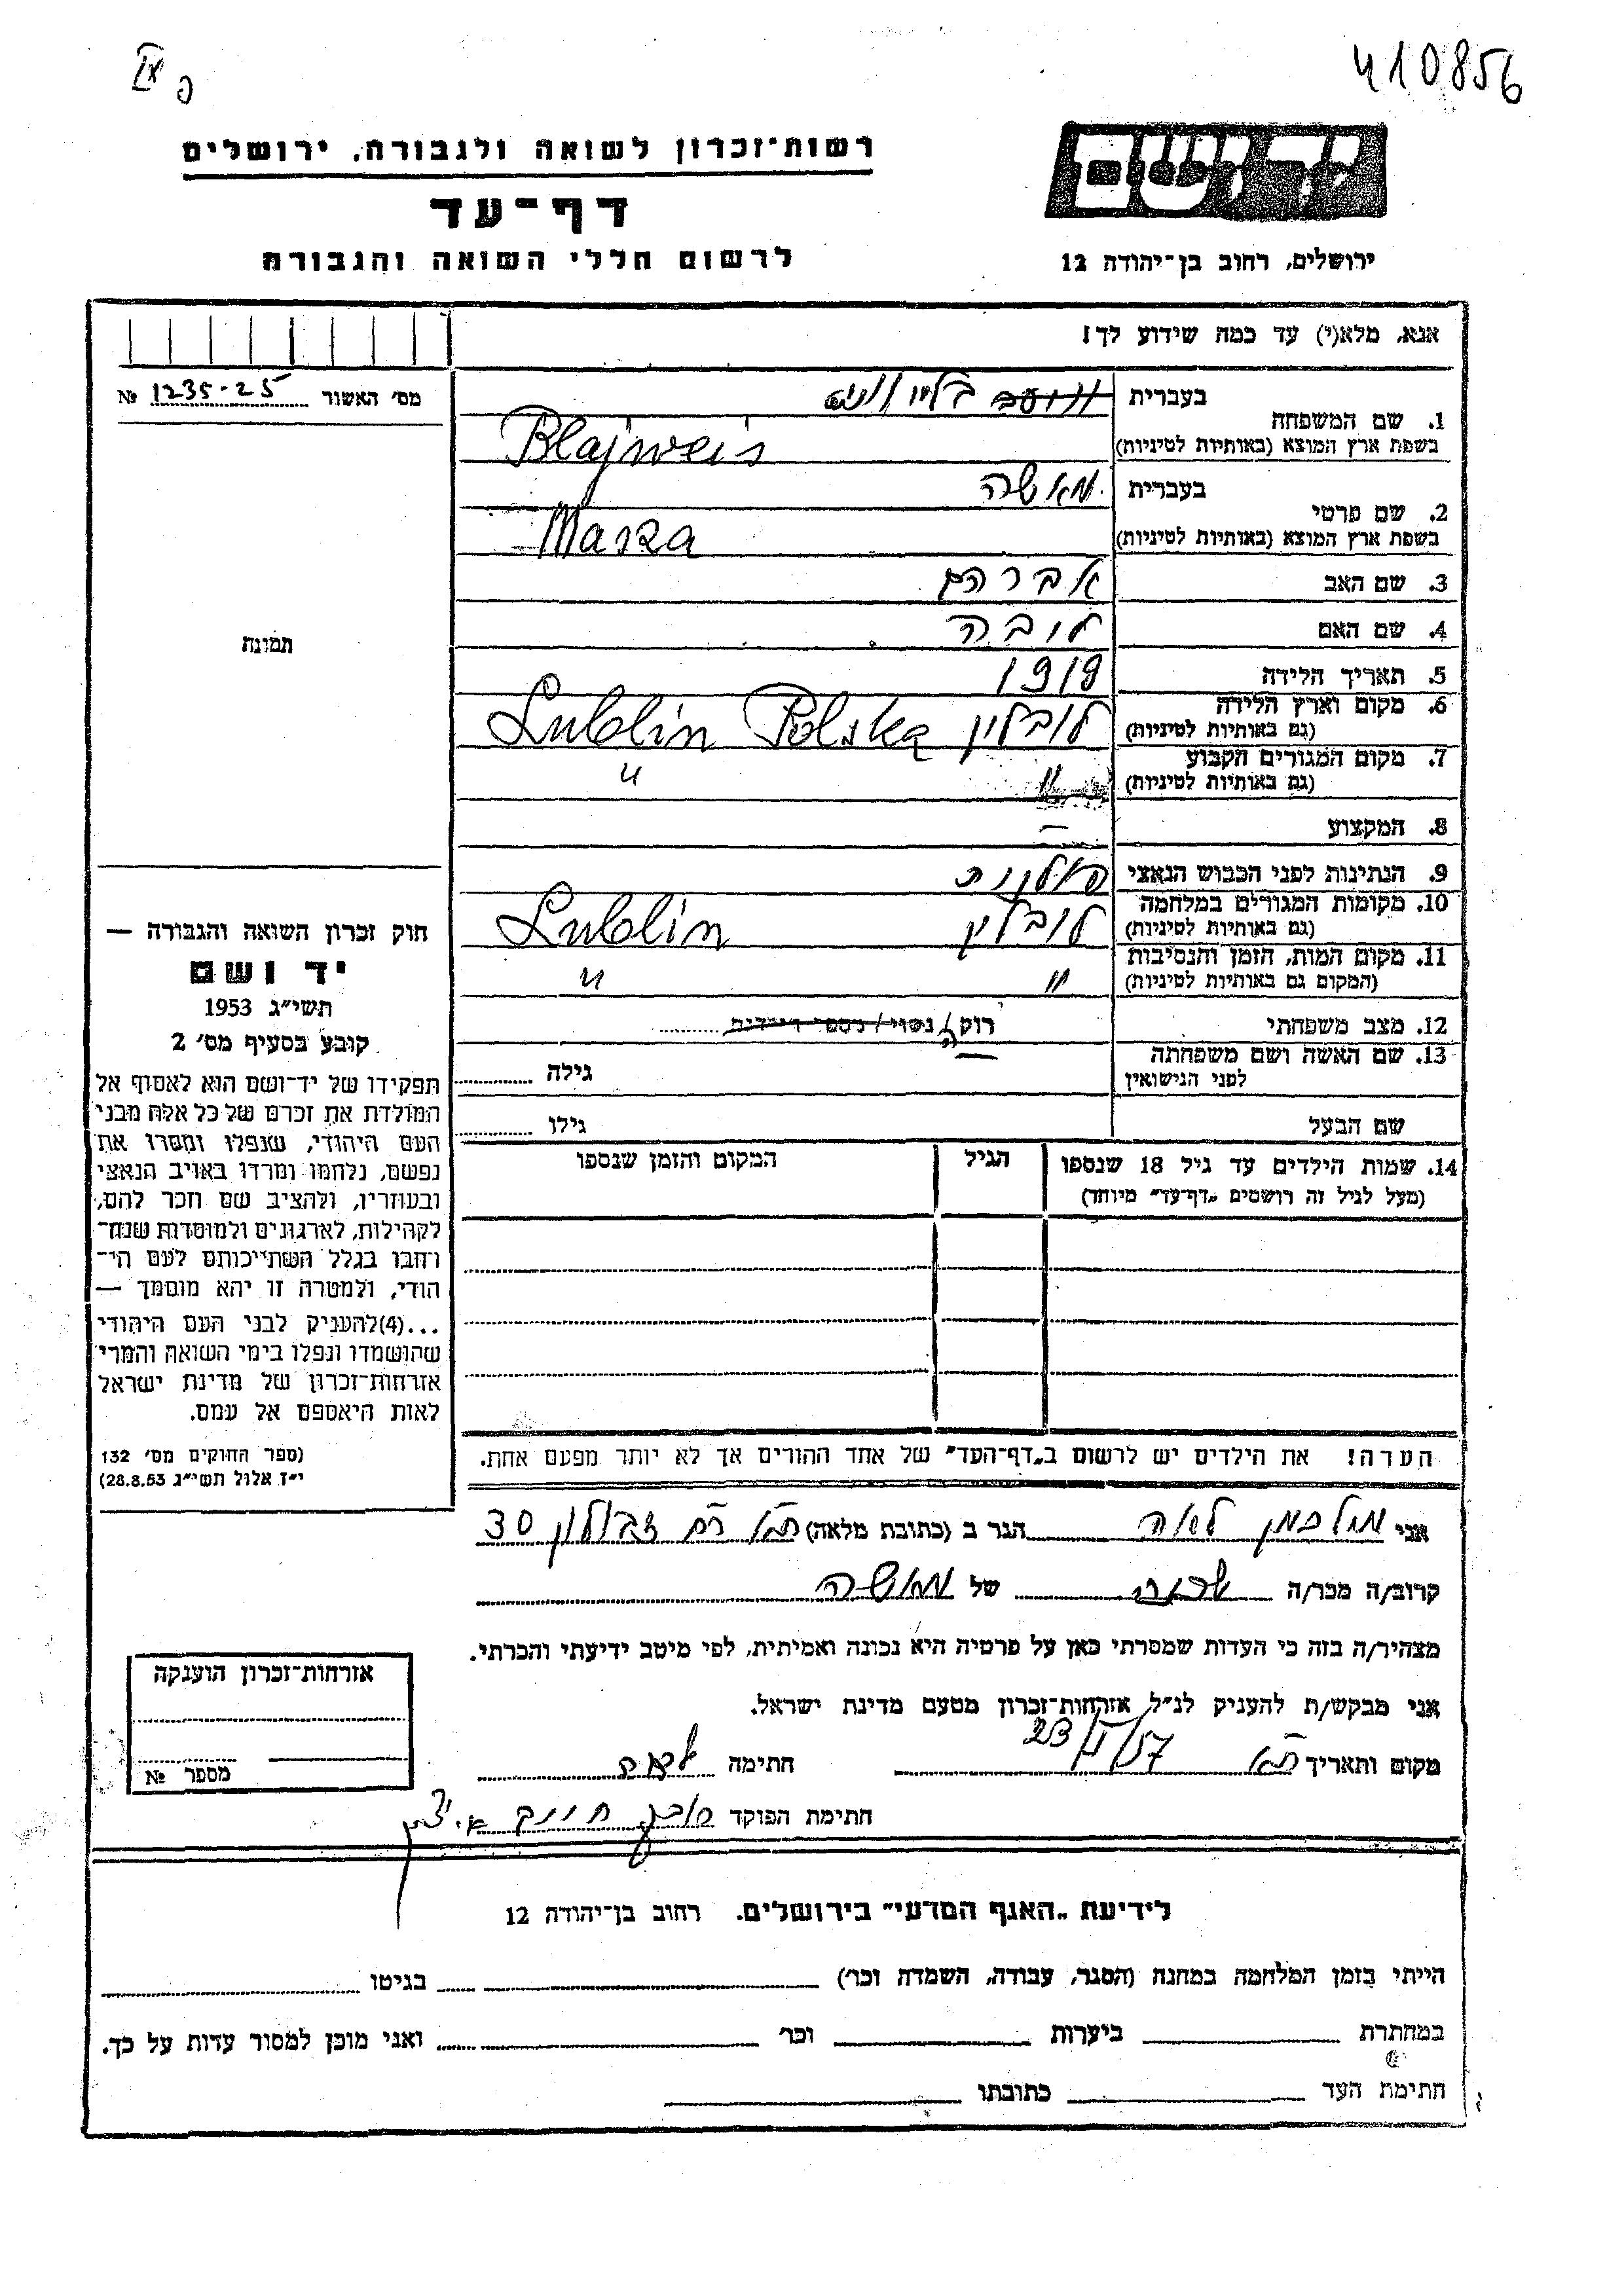 410856
רשות־זכרון לשואה ולגבורה, ירושלים
דף־עד
לרשום חללי השואה והגבורה
יד ושם
ירושלים, רחוב בן־יהודה 12
אנא, מלא(י) עד כמה שידוע לך!
מס׳ האשור 1235-25 №
תמונה
חוק זכרון השואה והגבורה —
יד ושם
תשי״ג 1953
קובע בסעיף מס׳ 2
תפקידו של יד־ושם הוא לאסוף אל
המולדת את זכרם של כל אלה מבני
העם היהודי, שנפלו ומסרו את
נפשם, נלחמו ומרדו באויב הנאצי
ובעוזריו, ולהציב שם וזכר להם,
לקהילות, לארגונים ולמוסדות שנח־
רחבו בגלל השתייכותם לעם הי־
הודי, ולמטרה זו יהא מוסמך —
...(4)להעניק לבני העם היהודי
שהושמדו ונפלו בימי השואה והמרי
אזרחות־זכרון של מדינת ישראל
לאות היאספם אל עמם.
(ספר החוקים מס׳ 132
י״ז אלול תשי״ג 28.8.53)
1. שם המשפחה
בעברית
בשפת ארץ המוצא (באותיות לטיניות) Blajweis
2. שם פרטי
בעברית מאשה
בשפת ארץ המוצא (באותיות לטיניות) Masza
3. שם האב אברהם
4. שם האם לובה
5. תאריך הלידה 1919
6. מקום וארץ הלידה לובלין Lublin Polska
(גם באותיות לטיניות)
7. מקום המגורים הקבוע " "
(גם באותיות לטיניות)
8. המקצוע —
9. הנתינות לפני הכבוש הנאצי פולנית
10. מקומות המגורים במלחמה לובלין Lublin
(גם באותיות לטיניות)
11. מקום המות, הזמן והנסיבות " "
(המקום גם באותיות לטיניות)
12. מצב משפחתי רוק/ה נשוי/
13. שם האשה ושם משפחתה — גילה
לפני הנישואין
שם הבעל גילו
14. שמות הילדים עד גיל 18 שנספו הגיל המקום והזמן שנספו
(מעל לגיל זה רושמים „דף־עד״ מיוחד)
הערה! את הילדים יש לרשום ב„דף־העד״ של אחד ההורים אך לא יותר מפעם אחת.
אני לאה הגר ב (כתובת מלאה) זבולון 30
קרוב/ה מכר/ה של מאשה
מצהיר/ה בזה כי העדות שמסרתי כאן על פרטיה היא נכונה ואמיתית, לפי מיטב ידיעתי והכרתי.
אני מבקש/ת להעניק לנ״ל אזרחות־זכרון מטעם מדינת ישראל.
מקום ותאריך ת״א 57 חתימה לאה
חתימת הפוקד
אזרחות־זכרון הוענקה
מספר №
לידיעת „האגף המדעי״ בירושלים. רחוב בן־יהודה 12
הייתי בזמן המלחמה במחנה (הסגר, עבודה, השמדה וכר׳) בגיטו
במחתרת ביערות וכר׳ ואני מוכן למסור עדות על כך.
חתימת העד כתובתו